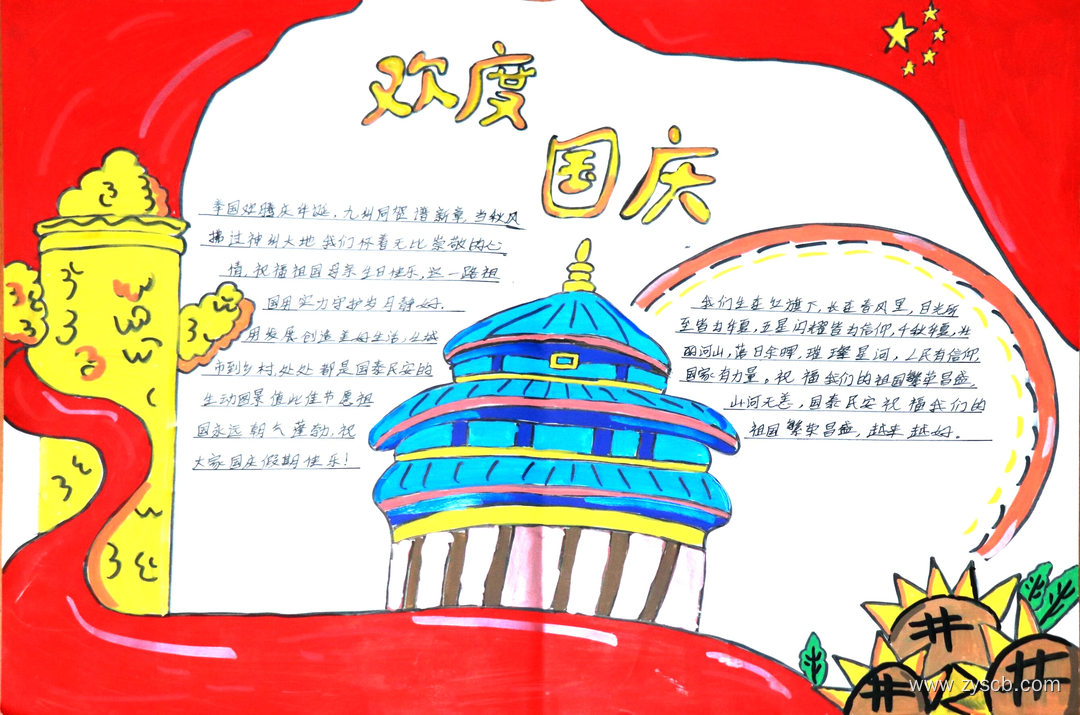 欢度
国庆
举国欢腾庆华诞,九州同征谱新章,当秋风
拂过神州大地我们怀着无比崇敬的心
情,祝福祖国母亲生日快乐,这一路祖
国用实力守护岁月静好.
用发展创造美好生活,从城
市到乡村,处处都是国泰民安的
生动图景值此佳节愿祖
国永远朝气蓬勃,祝
大家国庆假期快乐!
我们生在红旗下,长在春风里,目光所
至皆为华夏,五星闪耀皆为信仰,千秋华夏,壮
丽河山,落日余晖,璀璨星河,人民有信仰,
国家有力量。祝福我们的祖国繁荣昌盛,
山河无恙,国泰民安祝福我们的
祖国繁荣昌盛,越来越好.
www.zyscb.com